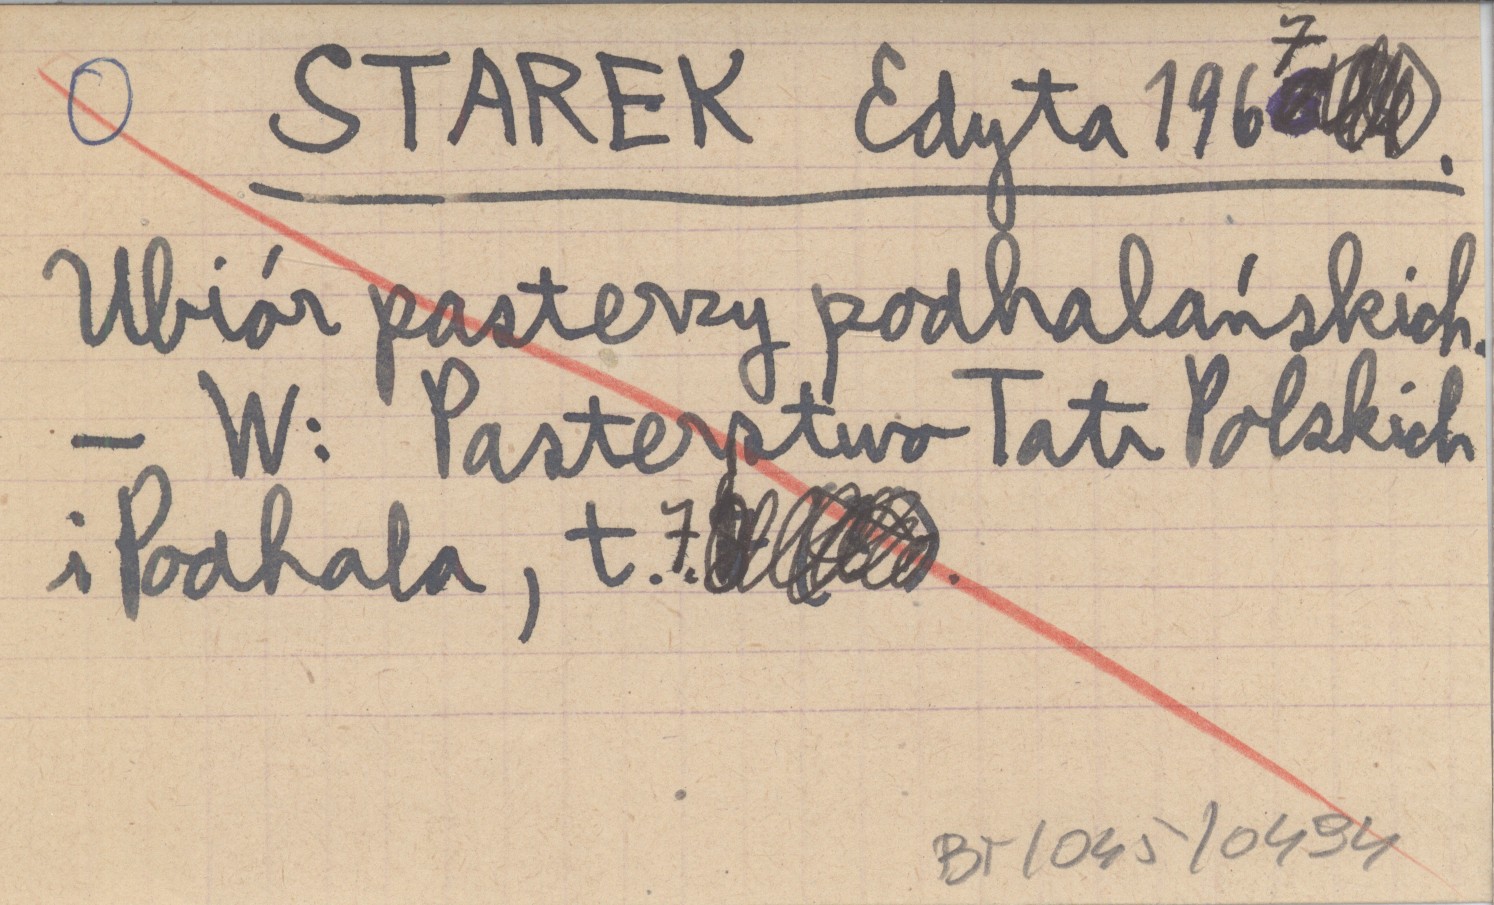 O STAREK Edyta 1967.
Ubiór pasterzy podhalańskich.
— W: Pasterstwo Tatr Polskich
i Podhala, t. 7.
BT/045/0494